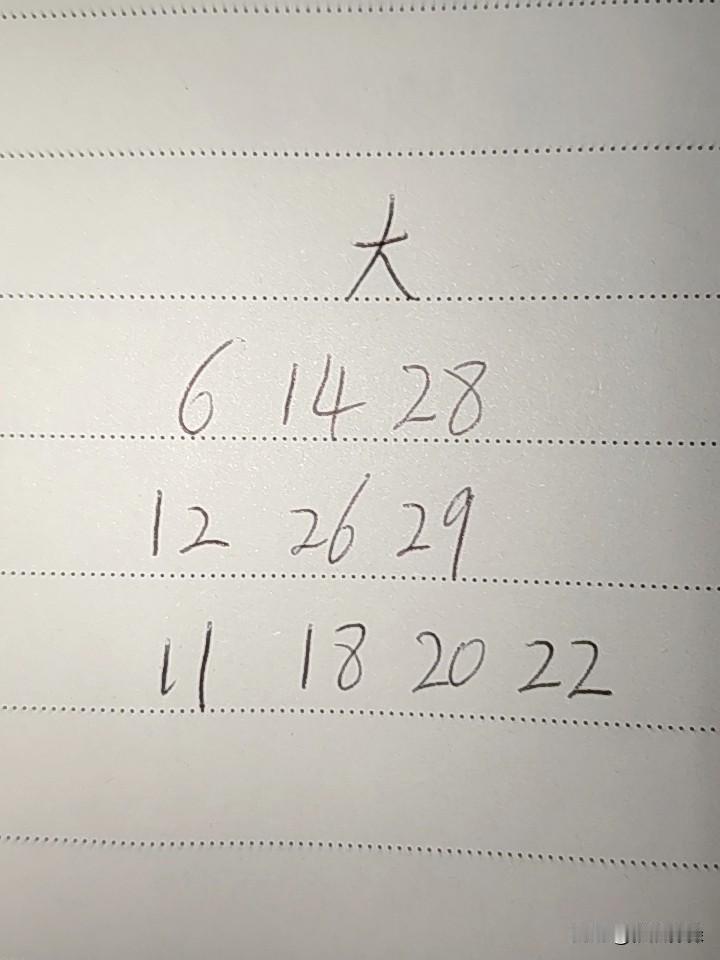 大
6 14 28
12 26 29
11 18 20 22